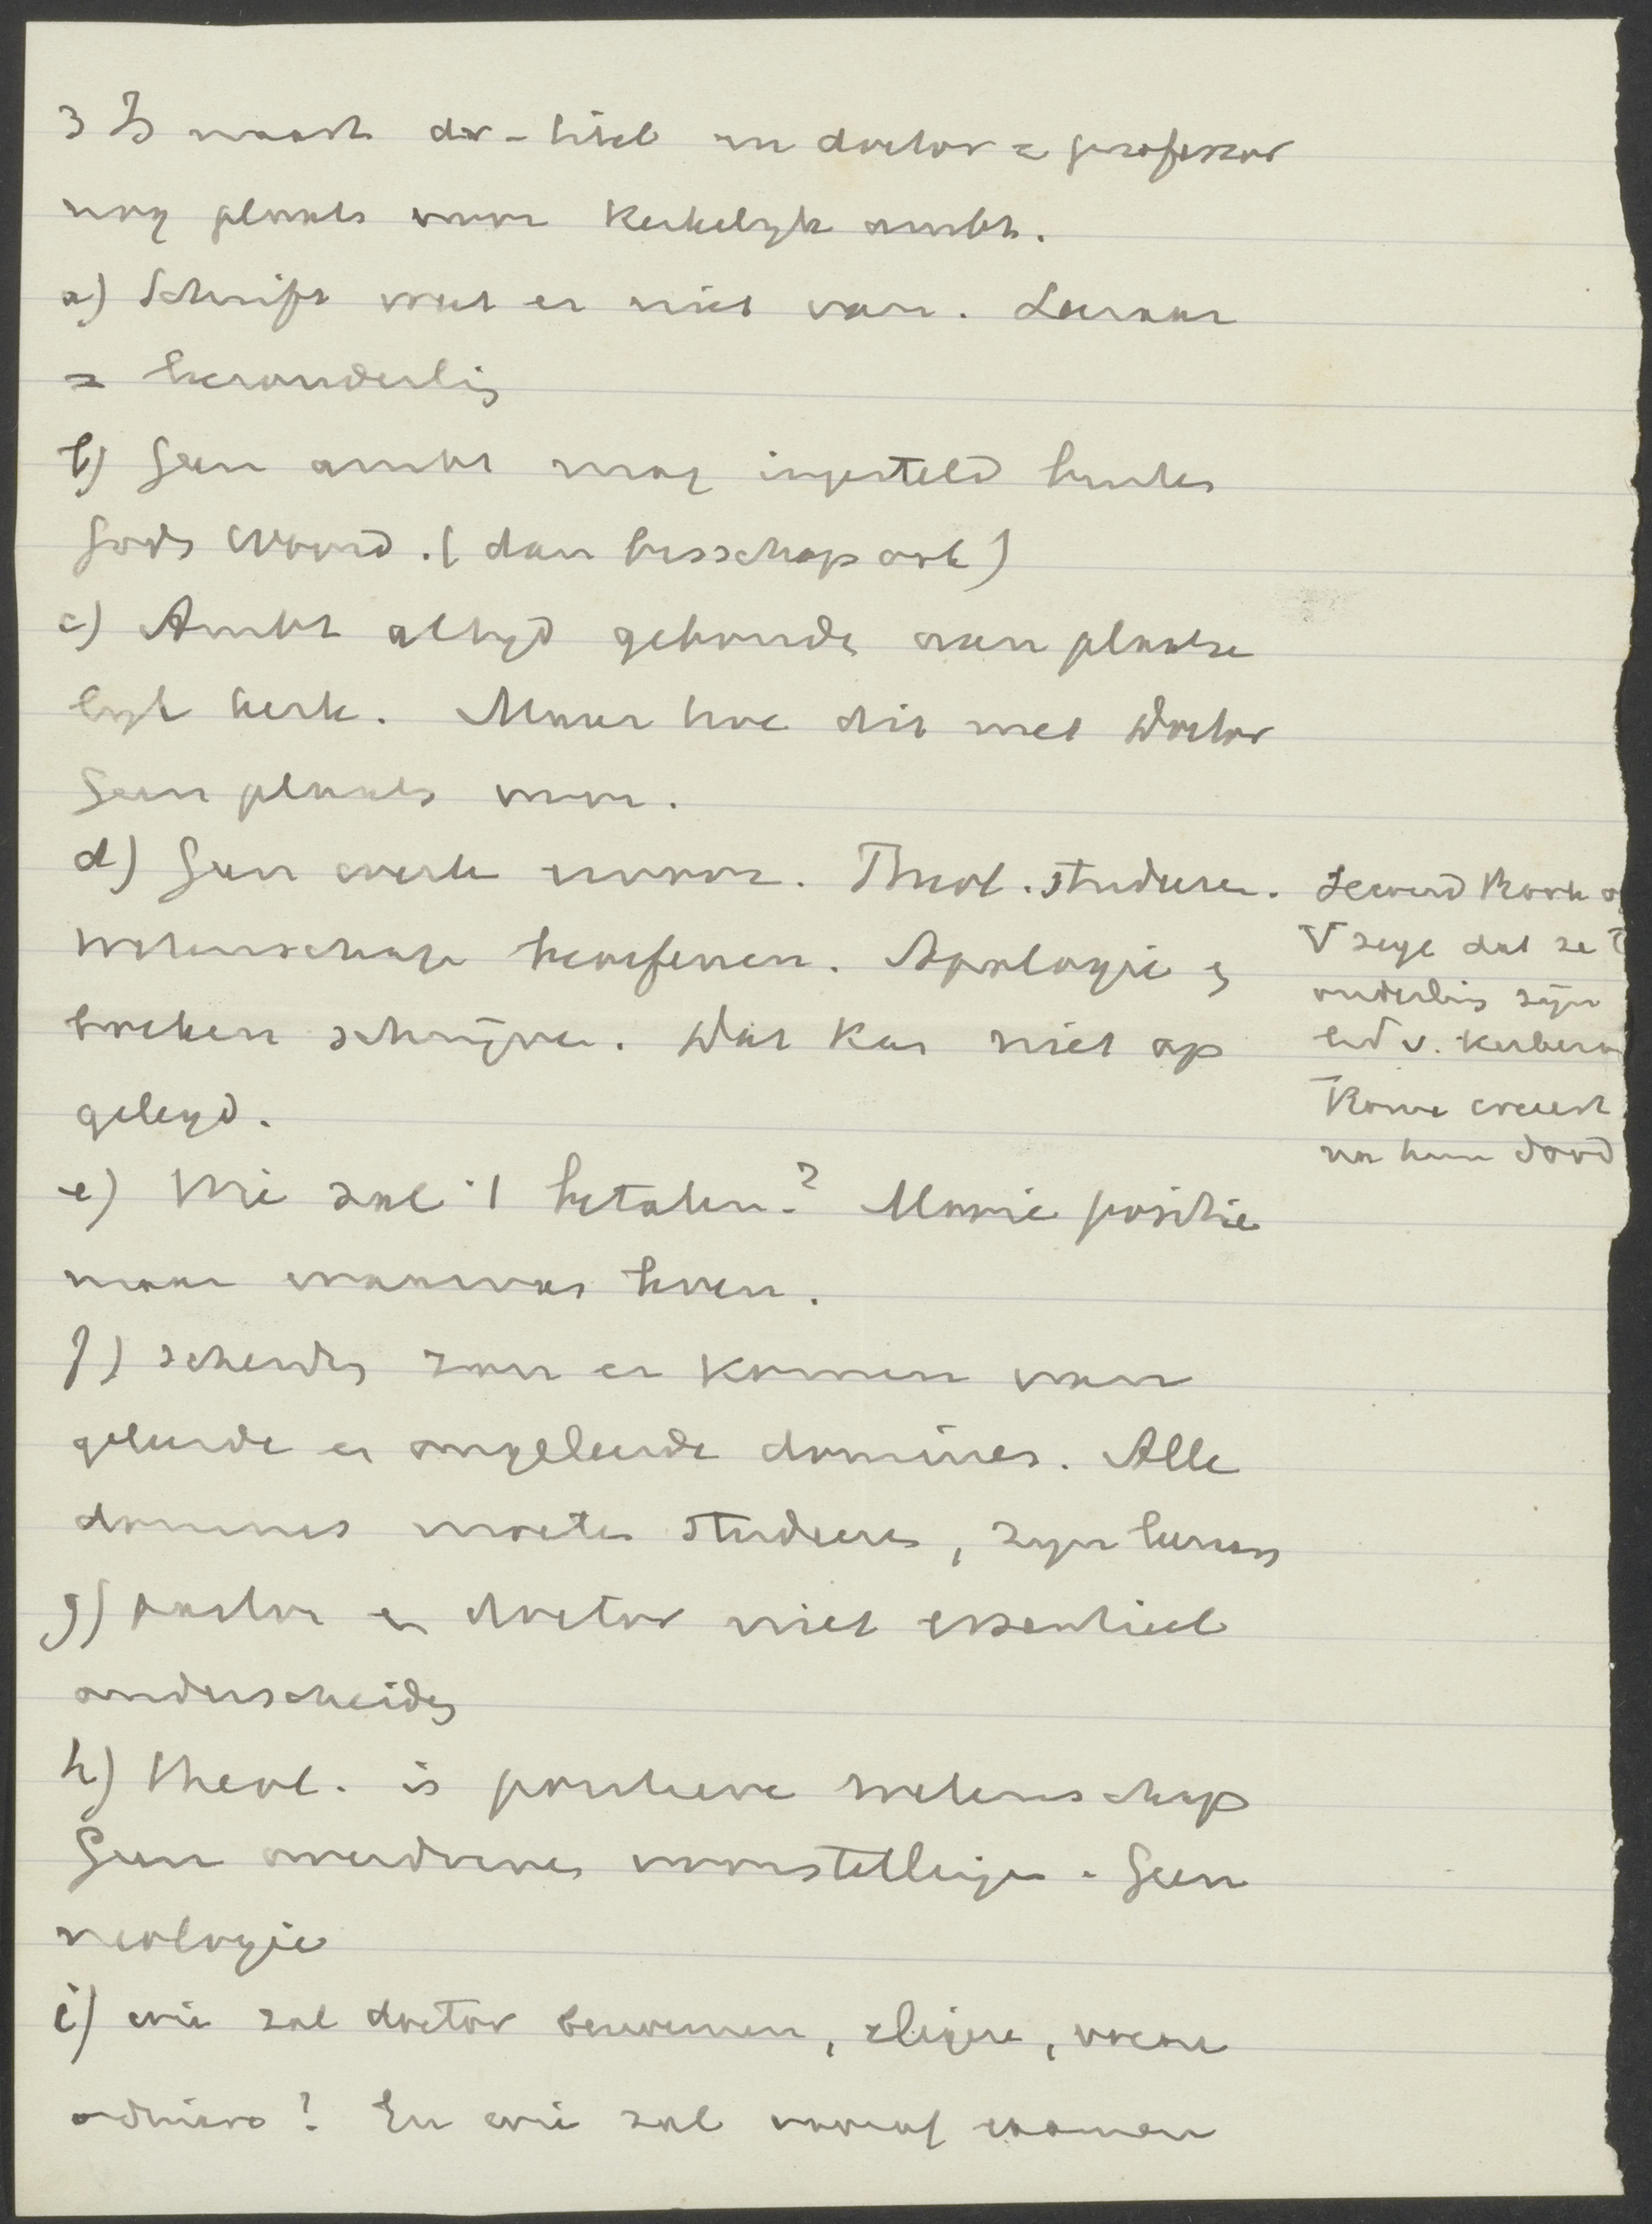 3 Is naast dr-titel en doctor = professor
nog plaats voor kerkelyk ambt.
a) Schrift weet er niet van. Leeraar
= leerouderling
b) Geen ambt mag ingesteld buiten
Gods Woord. (dan bisschop ook)
c) Ambt altyd gebonden aan plaatse
lyk kerk. Maar hoe dit met doctor
Geen plaats voor.
d) Geen werk voor. Theol. studeren.
Wetenschap beoefenen. Apologie en
boeken schrijven. Dat kan niet op
gelegd.
e) Wie zal 't betalen? Mooie positie
maar waarvan leven.
f) scheiding zou er komen van
geleerde en ongeleerde dominees. Alle
dominees moeten studeeren, zyn leeraars
g) pastor en doctor niet essentieel
onderscheiden
h) theol. is positieve wetenschap
Geen overdreven voorstellingen. Geen
neologie
i) wie zal doctor benoemen, eligere, vocare
? En wie zal vooraf examen
zegt dat ze
ouderling zijn
lid v. kerkera
Rome creëert
na hun dood